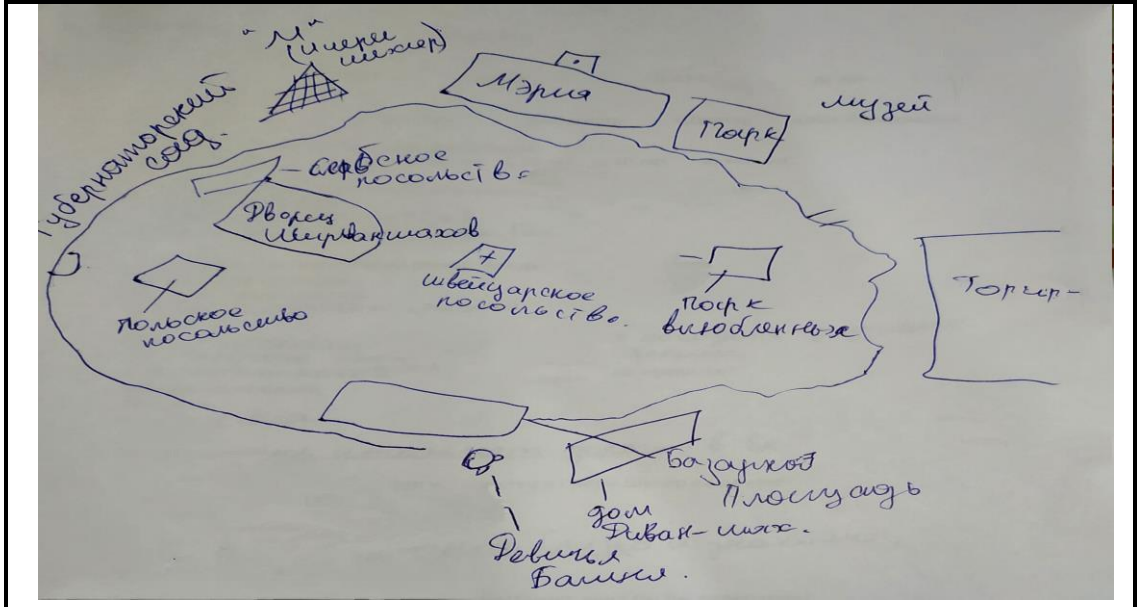 "М"
(ичери
шихер)
Губернаторский
сад.
Мэрия
Парк
музей
Сербское
посольств.
Дворец
Ширваншахов
Швейцарское
посольств.
Польское
посольство
парк
влюбленных
Торгр-
Базархоз
Площадь
дом
Диван-шах.
Девичья
Башня.